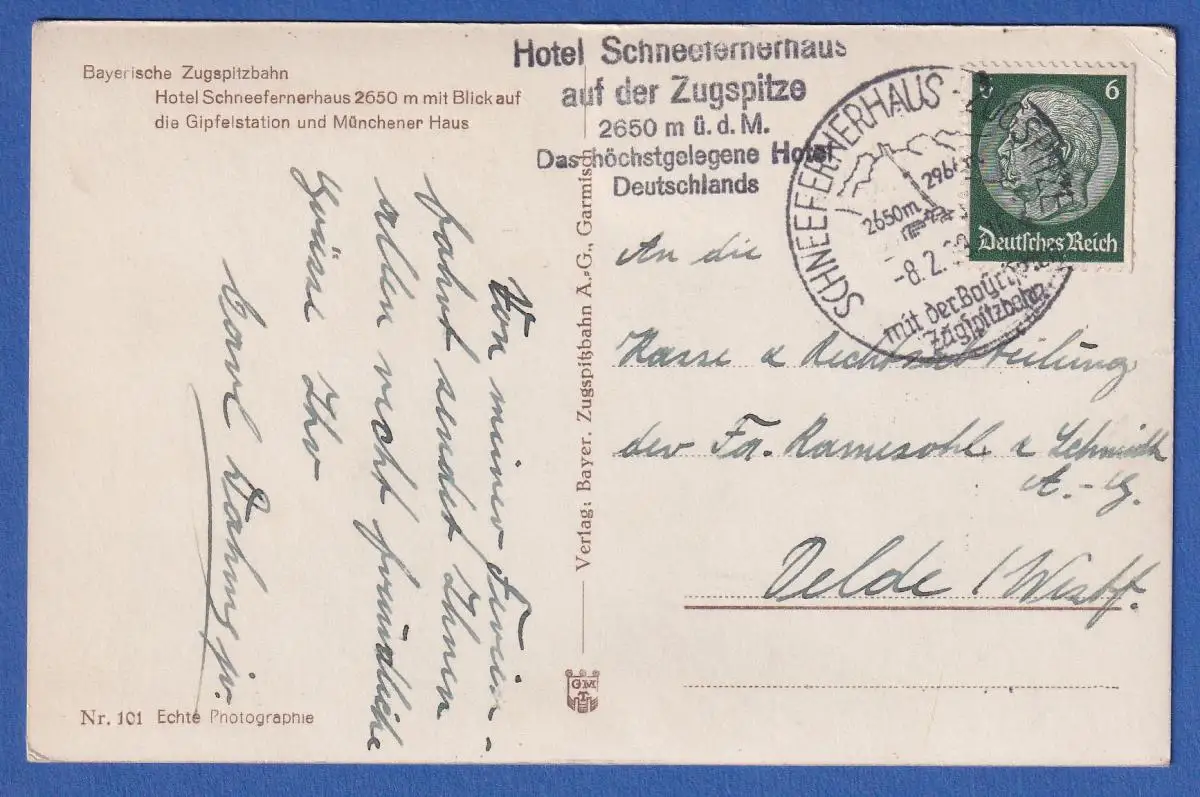 Bayerische Zugspitzbahn
Hotel Schneefernerhaus 2650 m mit Blick auf
die Gipfelstation und Münchener Haus
Hotel Schneefernerhaus
auf der Zugspitze
2650 m ü. d. M.
Das höchstgelegene Hotel
Deutschlands
SCHNEEFERNERHAUS - ZUGSPITZE
2650m
-8.2.
mit der Bayr.
Zugspitzbahn
6
Deutsches Reich
An die
Kasse & Rechtsabteilung
der Fa. Ramesohl & Schmidt
A.-G.
Oelde / Westf.
Von meiner Ferien-
fahrt sendet Ihnen
allen recht freundliche
Grüsse Ihr
Carl
jr.
Verlag: Bayer. Zugspitzbahn A.-G., Garmisch
GMT
Nr. 101 Echte Photographie